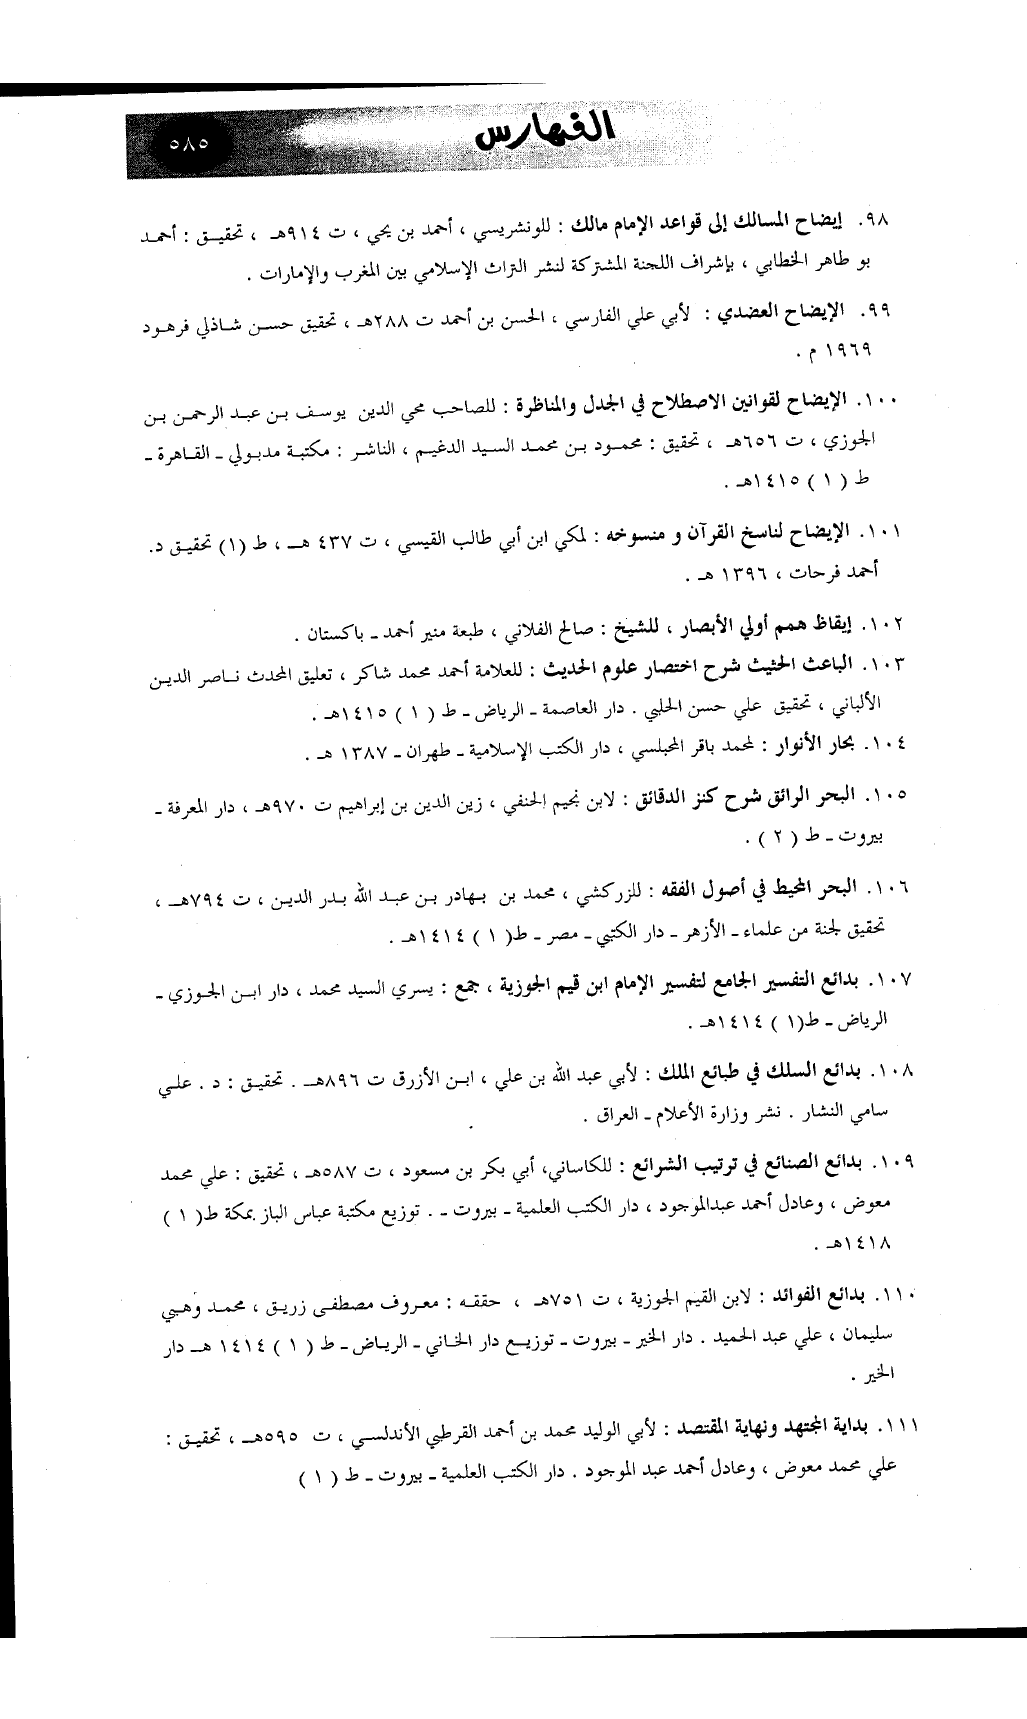 الفهارس
٥٨٥
٩٨. إيضاح المسالك إلى قواعد الإمام مالك : للونشريسي ، أحمد بن يحي ، ت ٩١٤هـ ، تحقيق : أحمد
بو طاهر الخطابي ، بإشراف اللجنة المشتركة لنشر التراث الإسلامي بين المغرب والإمارات .
٩٩. الإيضاح العضدي : لأبي علي الفارسي ، الحسن بن أحمد ت ٢٨٨هـ ، تحقيق حسن شاذلي فرهود
١٩٦٩ م .
١٠٠. الإيضاح لقوانين الاصطلاح في الجدل والمناظرة : للصاحب محي الدين يوسف بن عبد الرحمن بن
الجوزي ، ت ٦٥٦هـ ، تحقيق : محمود بن محمد السيد الدغيم ، الناشر : مكتبة مدبولي ـ القاهرة ـ
ط ( ١ ) ١٤١٥هـ .
١٠١. الإيضاح لناسخ القرآن و منسوخه : لمكي ابن أبي طالب القيسي ، ت ٤٣٧ هـ ، ط (١) تحقيق د.
أحمد فرحات ، ١٣٩٦ هـ .
١٠٢. إيقاظ همم أولي الأبصار ، للشيخ : صالح الفلاني ، طبعة منير أحمد ـ باكستان .
١٠٣. الباعث الحثيث شرح اختصار علوم الحديث : للعلامة أحمد محمد شاكر ، تعليق المحدث ناصر الدين
الألباني ، تحقيق علي حسن الحلبي . دار العاصمة ـ الرياض ـ ط ( ١ ) ١٤١٥هـ .
١٠٤. بحار الأنوار : لمحمد باقر المجبلسي ، دار الكتب الإسلامية ـ طهران ـ ١٣٨٧ هـ .
١٠٥. البحر الرائق شرح كنز الدقائق : لابن نجيم الحنفي ، زين الدين بن إبراهيم ت ٩٧٠هـ ، دار المعرفة ـ
بيروت ـ ط ( ٢ ) .
١٠٦. البحر المحيط في أصول الفقه : للزركشي ، محمد بن بهادر بن عبد الله بدر الدين ، ت ٧٩٤هـ ،
تحقيق لجنة من علماء ـ الأزهر ـ دار الكتبي ـ مصر ـ ط( ١ ) ١٤١٤هـ .
١٠٧. بدائع التفسير الجامع لتفسير الإمام ابن قيم الجوزية ، جمع : يسري السيد محمد ، دار ابن الجوزي ـ
الرياض ـ ط(١ ) ١٤١٤هـ .
١٠٨. بدائع السلك في طبائع الملك : لأبي عبد الله بن علي ، ابن الأزرق ت ٨٩٦هـ . تحقيق : د . علي
سامي النشار . نشر وزارة الأعلام ـ العراق .
١٠٩. بدائع الصنائع في ترتيب الشرائع : للكاساني، أبي بكر بن مسعود ، ت ٥٨٧هـ ، تحقيق : علي محمد
معوض ، وعادل أحمد عبدالموجود ، دار الكتب العلمية ـ بيروت ـ . توزيع مكتبة عباس الباز بمكة ط( ١ )
١٤١٨هـ .
١١٠. بدائع الفوائد : لابن القيم الجوزية ، ت ٧٥١هـ ، حققه : معروف مصطفى زريق ، محمد وهبي
سليمان ، علي عبد الحميد . دار الخير ـ بيروت ـ توزيع دار الخاني ـ الرياض ـ ط ( ١ ) ١٤١٤ هـ دار
الخير .
١١١. بداية المجتهد ونهاية المقتصد : لأبي الوليد محمد بن أحمد القرطبي الأندلسي ، ت ٥٩٥هـ ، تحقيق :
علي محمد معوض ، وعادل أحمد عبد الموجود . دار الكتب العلمية ـ بيروت ـ ط ( ١ )